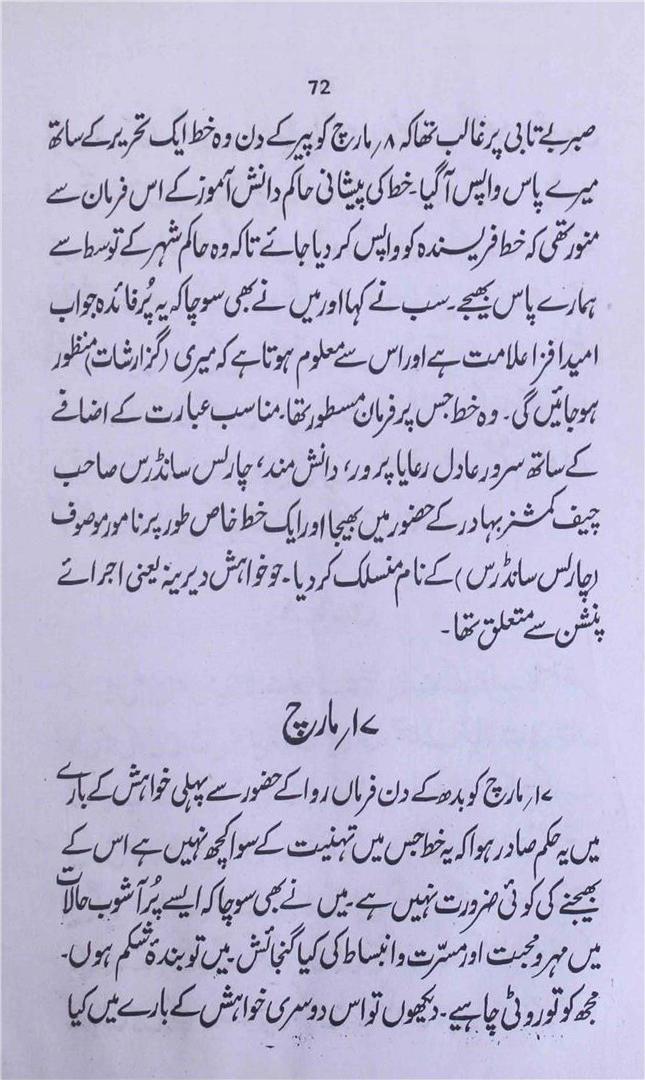 72
صبر بے تابی پر غالب تھا کہ ۸؍ مارچ کو پیر کے دن وہ خط ایک تحریر کے ساتھ
میرے پاس واپس آگیا۔ خط کی پیشانی حاکم دانش آموز کے اس فرمان سے
منور تھی کہ خط فریسندہ کو واپس کر دیا جائے تاکہ وہ حاکم شہر کے توسط سے
ہمارے پاس بھیجے۔ سب نے کہا اور میں نے بھی سوچا کہ یہ پُر فائدہ جواب
امید افزا علامت ہے اور اس سے معلوم ہوتا ہے کہ میری (گزارشات) منظور
ہو جائیں گی۔ وہ خط جس پر فرمان مسطور تھا۔ مناسب عبارت کے اضافے
کے ساتھ سرور عادل رعایا پرور، دانش مند، چارلس سانڈرس صاحب
چیف کمشنر بہادر کے حضور میں بھیجا اور ایک خط خاص طور پر نامور موصوف
(چارلس سانڈرس) کے نام منسلک کر دیا۔ جو خواہش دیرینہ یعنی اجرائے
پنشن سے متعلق تھا۔
۱۷؍ مارچ
۱۷؍ مارچ کو بدھ کے دن فرماں روا کے حضور سے پہلی خواہش کے بارے
میں یہ حکم صادر ہوا کہ یہ خط جس میں تہنیت کے سوا کچھ نہیں ہے اس کے
بھیجنے کی کوئی ضرورت نہیں ہے۔ میں نے بھی سوچا کہ ایسے پُر آشوب حالات
میں مہر و محبت اور مسرّت و انبساط کی کیا گنجائش۔ میں تو بندۂ شکم ہوں۔
مجھ کو تو روٹی چاہیے۔ دیکھوں تو اس دوسری خواہش کے بارے میں کیا